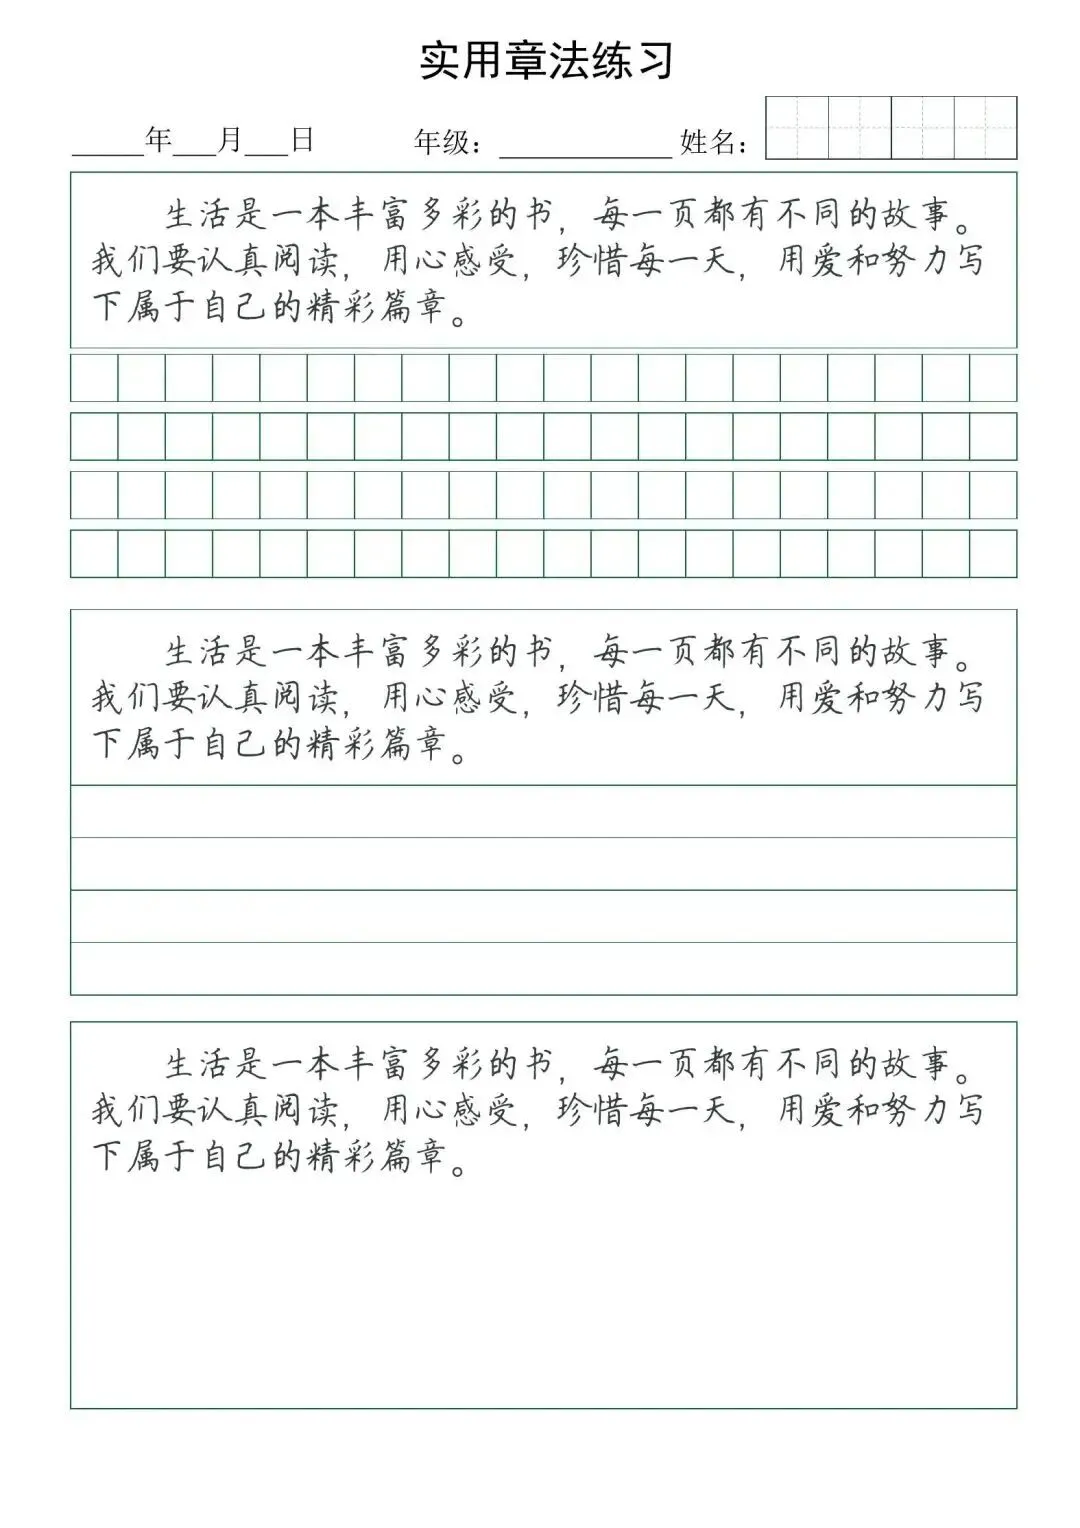 实用章法练习
_____年___月___日 年级：____________ 姓名：
生活是一本丰富多彩的书，每一页都有不同的故事。
我们要认真阅读，用心感受，珍惜每一天，用爱和努力写
下属于自己的精彩篇章。
生活是一本丰富多彩的书，每一页都有不同的故事。
我们要认真阅读，用心感受，珍惜每一天，用爱和努力写
下属于自己的精彩篇章。
生活是一本丰富多彩的书，每一页都有不同的故事。
我们要认真阅读，用心感受，珍惜每一天，用爱和努力写
下属于自己的精彩篇章。